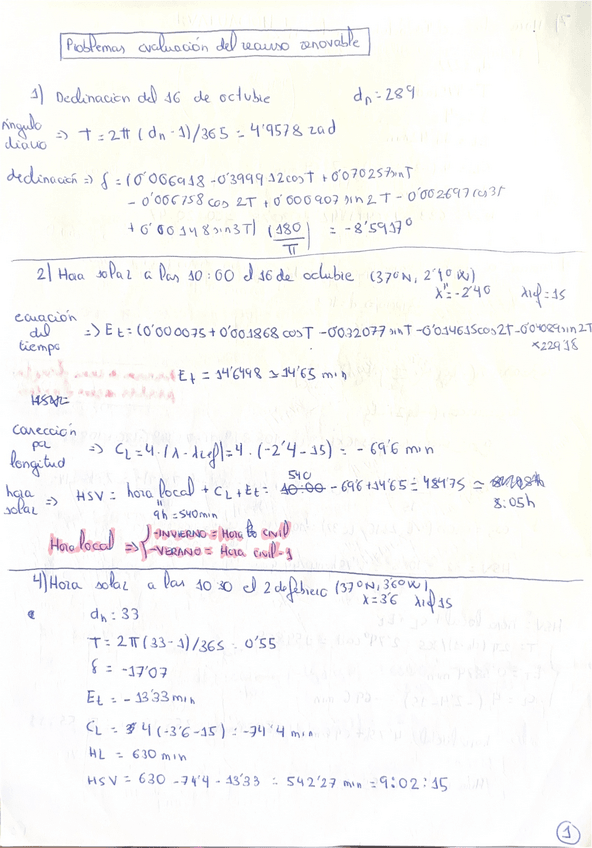 Problemas evaluación del recurso renovable
1) Declinación del 16 de octubre dn=289
ángulo diario => T = 2π (dn-1)/365 = 4'9578 rad
declinación => δ = (0'006918 - 0'399912 cosT + 0'070257 sinT
- 0'006758 cos 2T + 0'000907 sin 2T - 0'002697 cos 3T
+ 0'00148 sin 3T) (180/π) = -8'5917°
2) Hora solar a las 10:00 el 16 de octubre (37°N, 2'40 W)
λ = -2'40 λref = 15
ecuación del tiempo => Et = (0'000075 + 0'001868 cosT - 0'032077 sinT - 0'014615 cos 2T - 0'04089 sin 2T
×229'18
Et = 14'6498 ≃ 14'65 min
corrección por longitud => CL = 4·(λ-λref) = 4·(-2'4-15) = -69'6 min
540
hora solar => HSV = hora local + CL + Et = 10:00 - 69'6 + 14'65 = 484'75 ≃
8:05h
9h = 540min
Hora local => {-INVIERNO = Hora civil
-VERANO = Hora civil -1
4) Hora solar a las 10:30 el 2 de febrero (37°N, 3'60W)
λ=3'6 λref 15
dn = 33
T = 2π(33-1)/365 = 0'55
δ = -17'07
Et = -13'33 min
CL = 4(-3'6-15) = -74'4 min
HL = 630 min
HSV = 630 -74'4 -13'33 = 542'27 min = 9:02:15
1